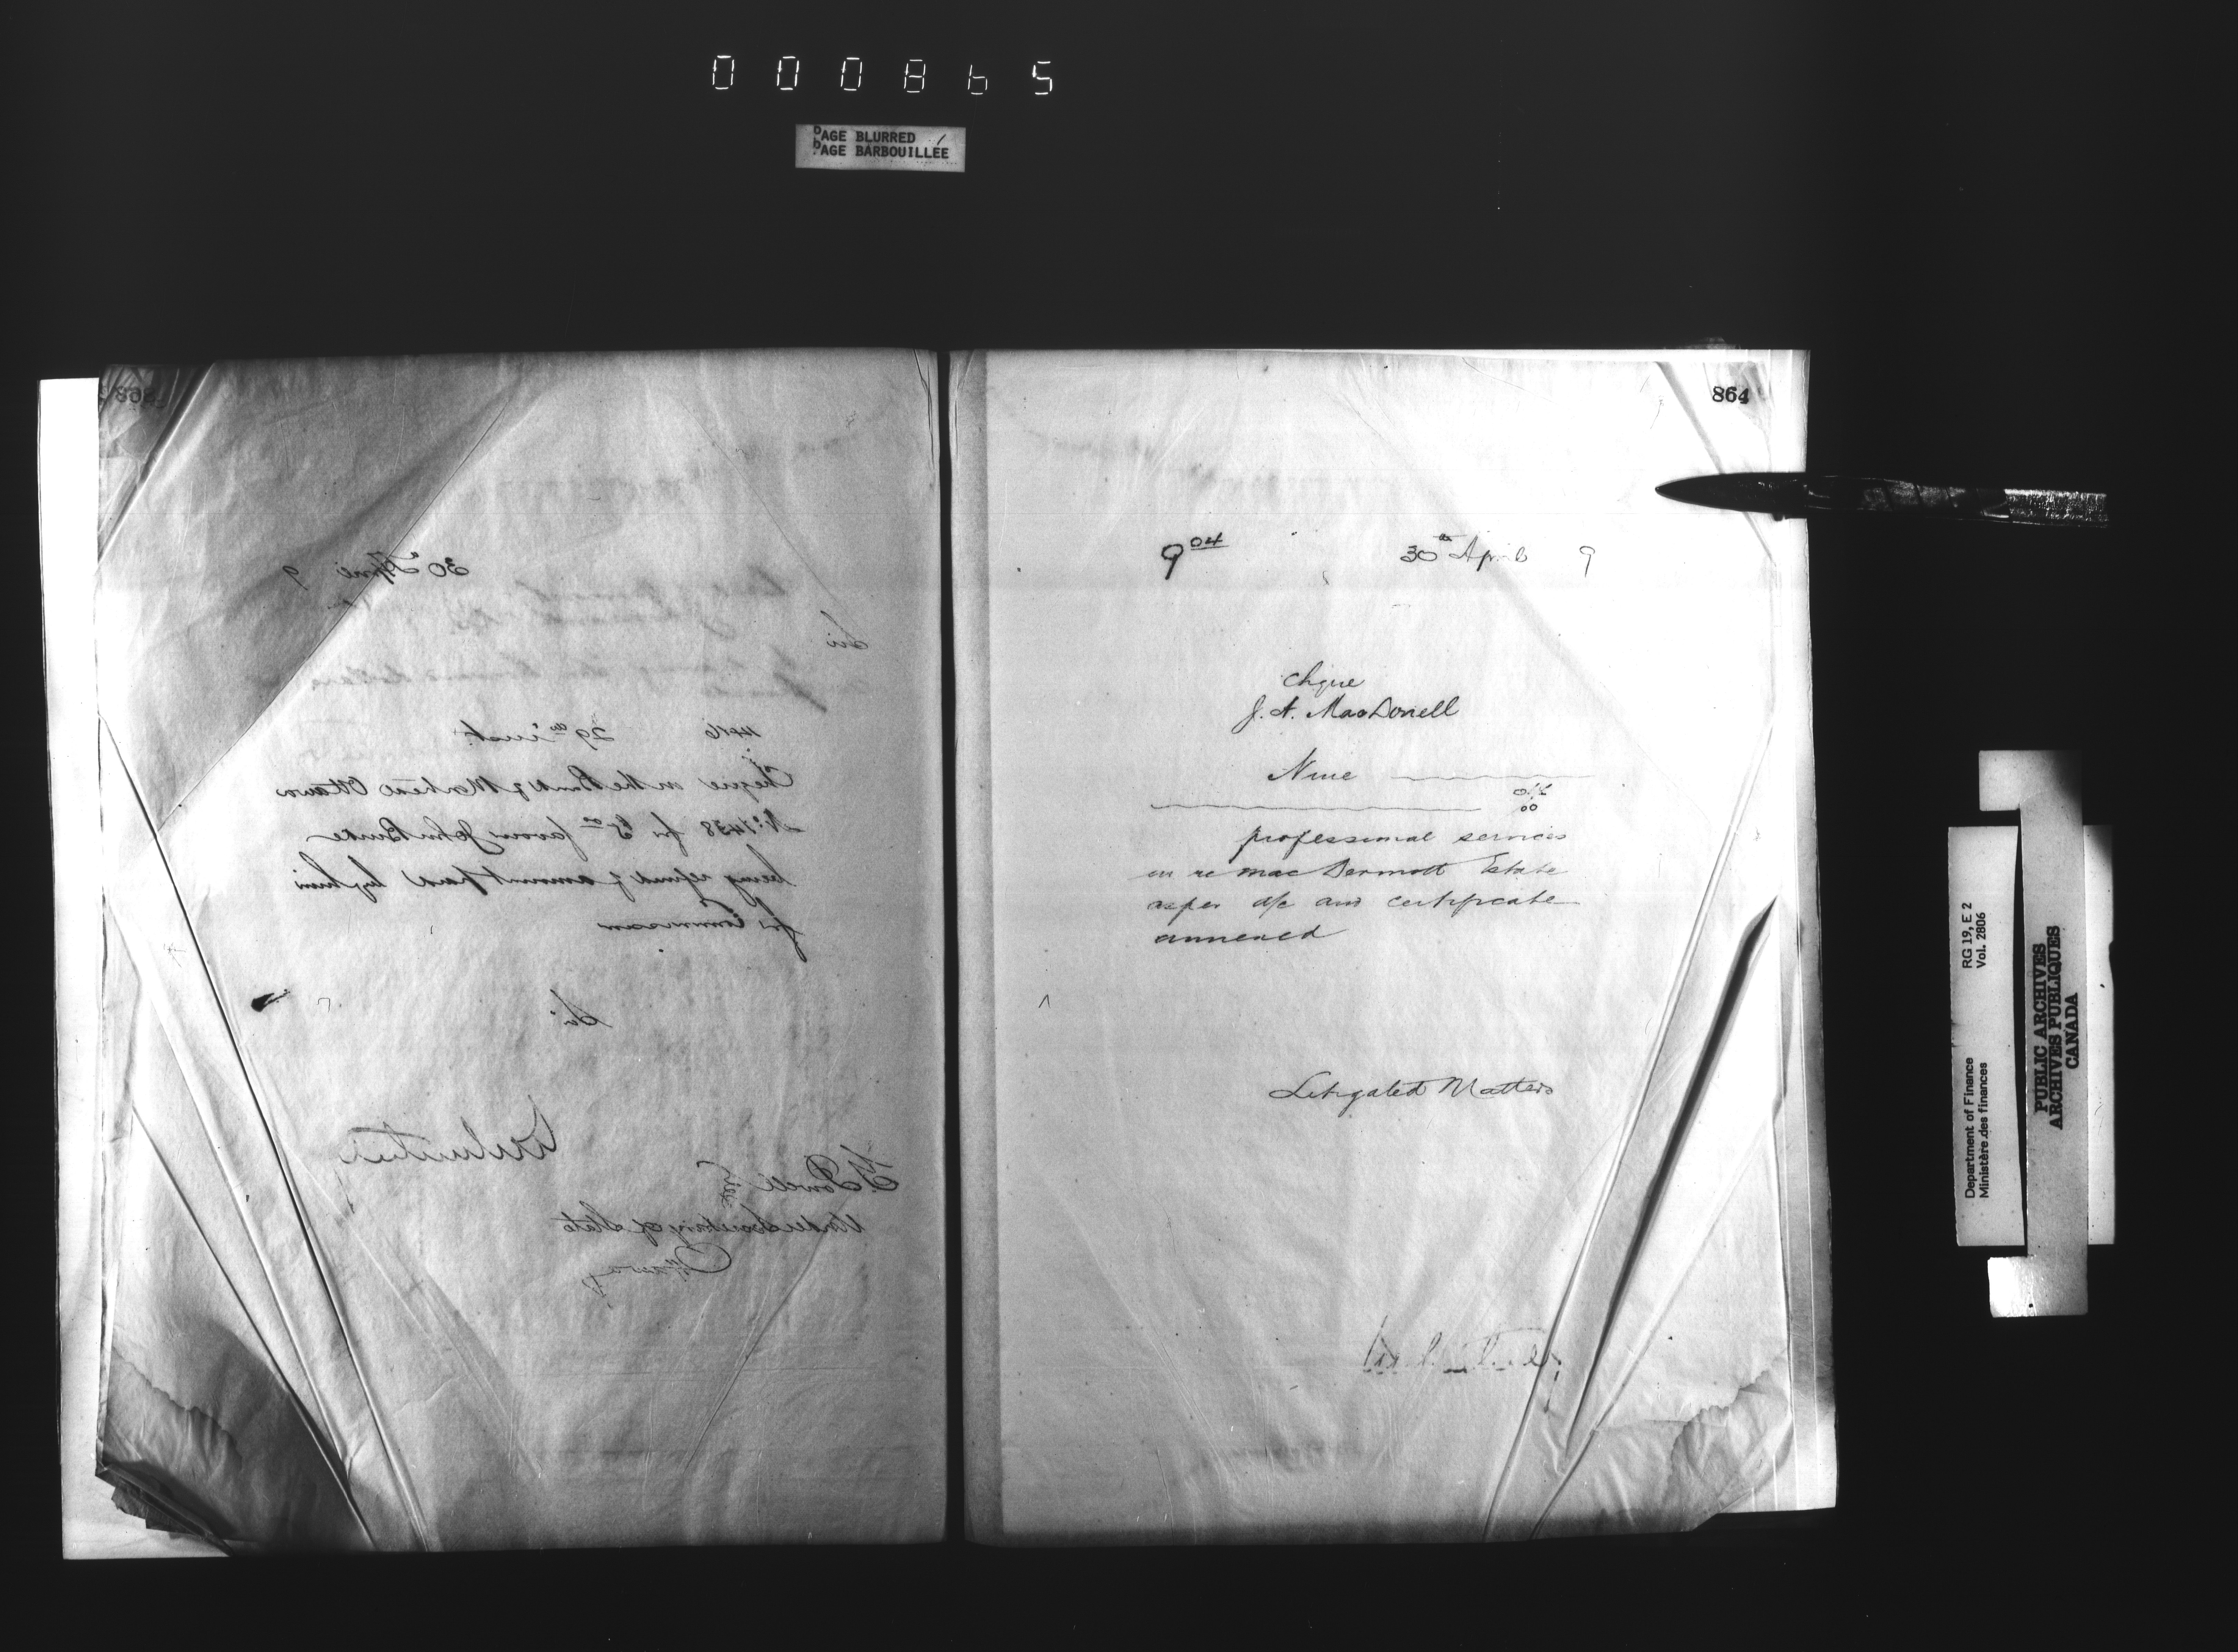 000865
PAGE BLURRED
PAGE BARBOUILLÉE
30th April 9
Sir
29th inst.
Cheque on the Bank of Montreal Ottawa
No. 1438 for favour John Burke
being refund of amount paid by him
for Commission
Sir
Powell Esq
Under Secretary of State
Ottawa
864
9 04 30th April 9
Chque
J. A. MacDonell
Nine
04
00
professional services
in re MacDermott Estate
as per a/c and certificate
annexed
Litigated Matters
RG 19, E 2
Vol. 2806
Department of Finance
Ministère des finances
PUBLIC ARCHIVES
ARCHIVES PUBLIQUES
CANADA